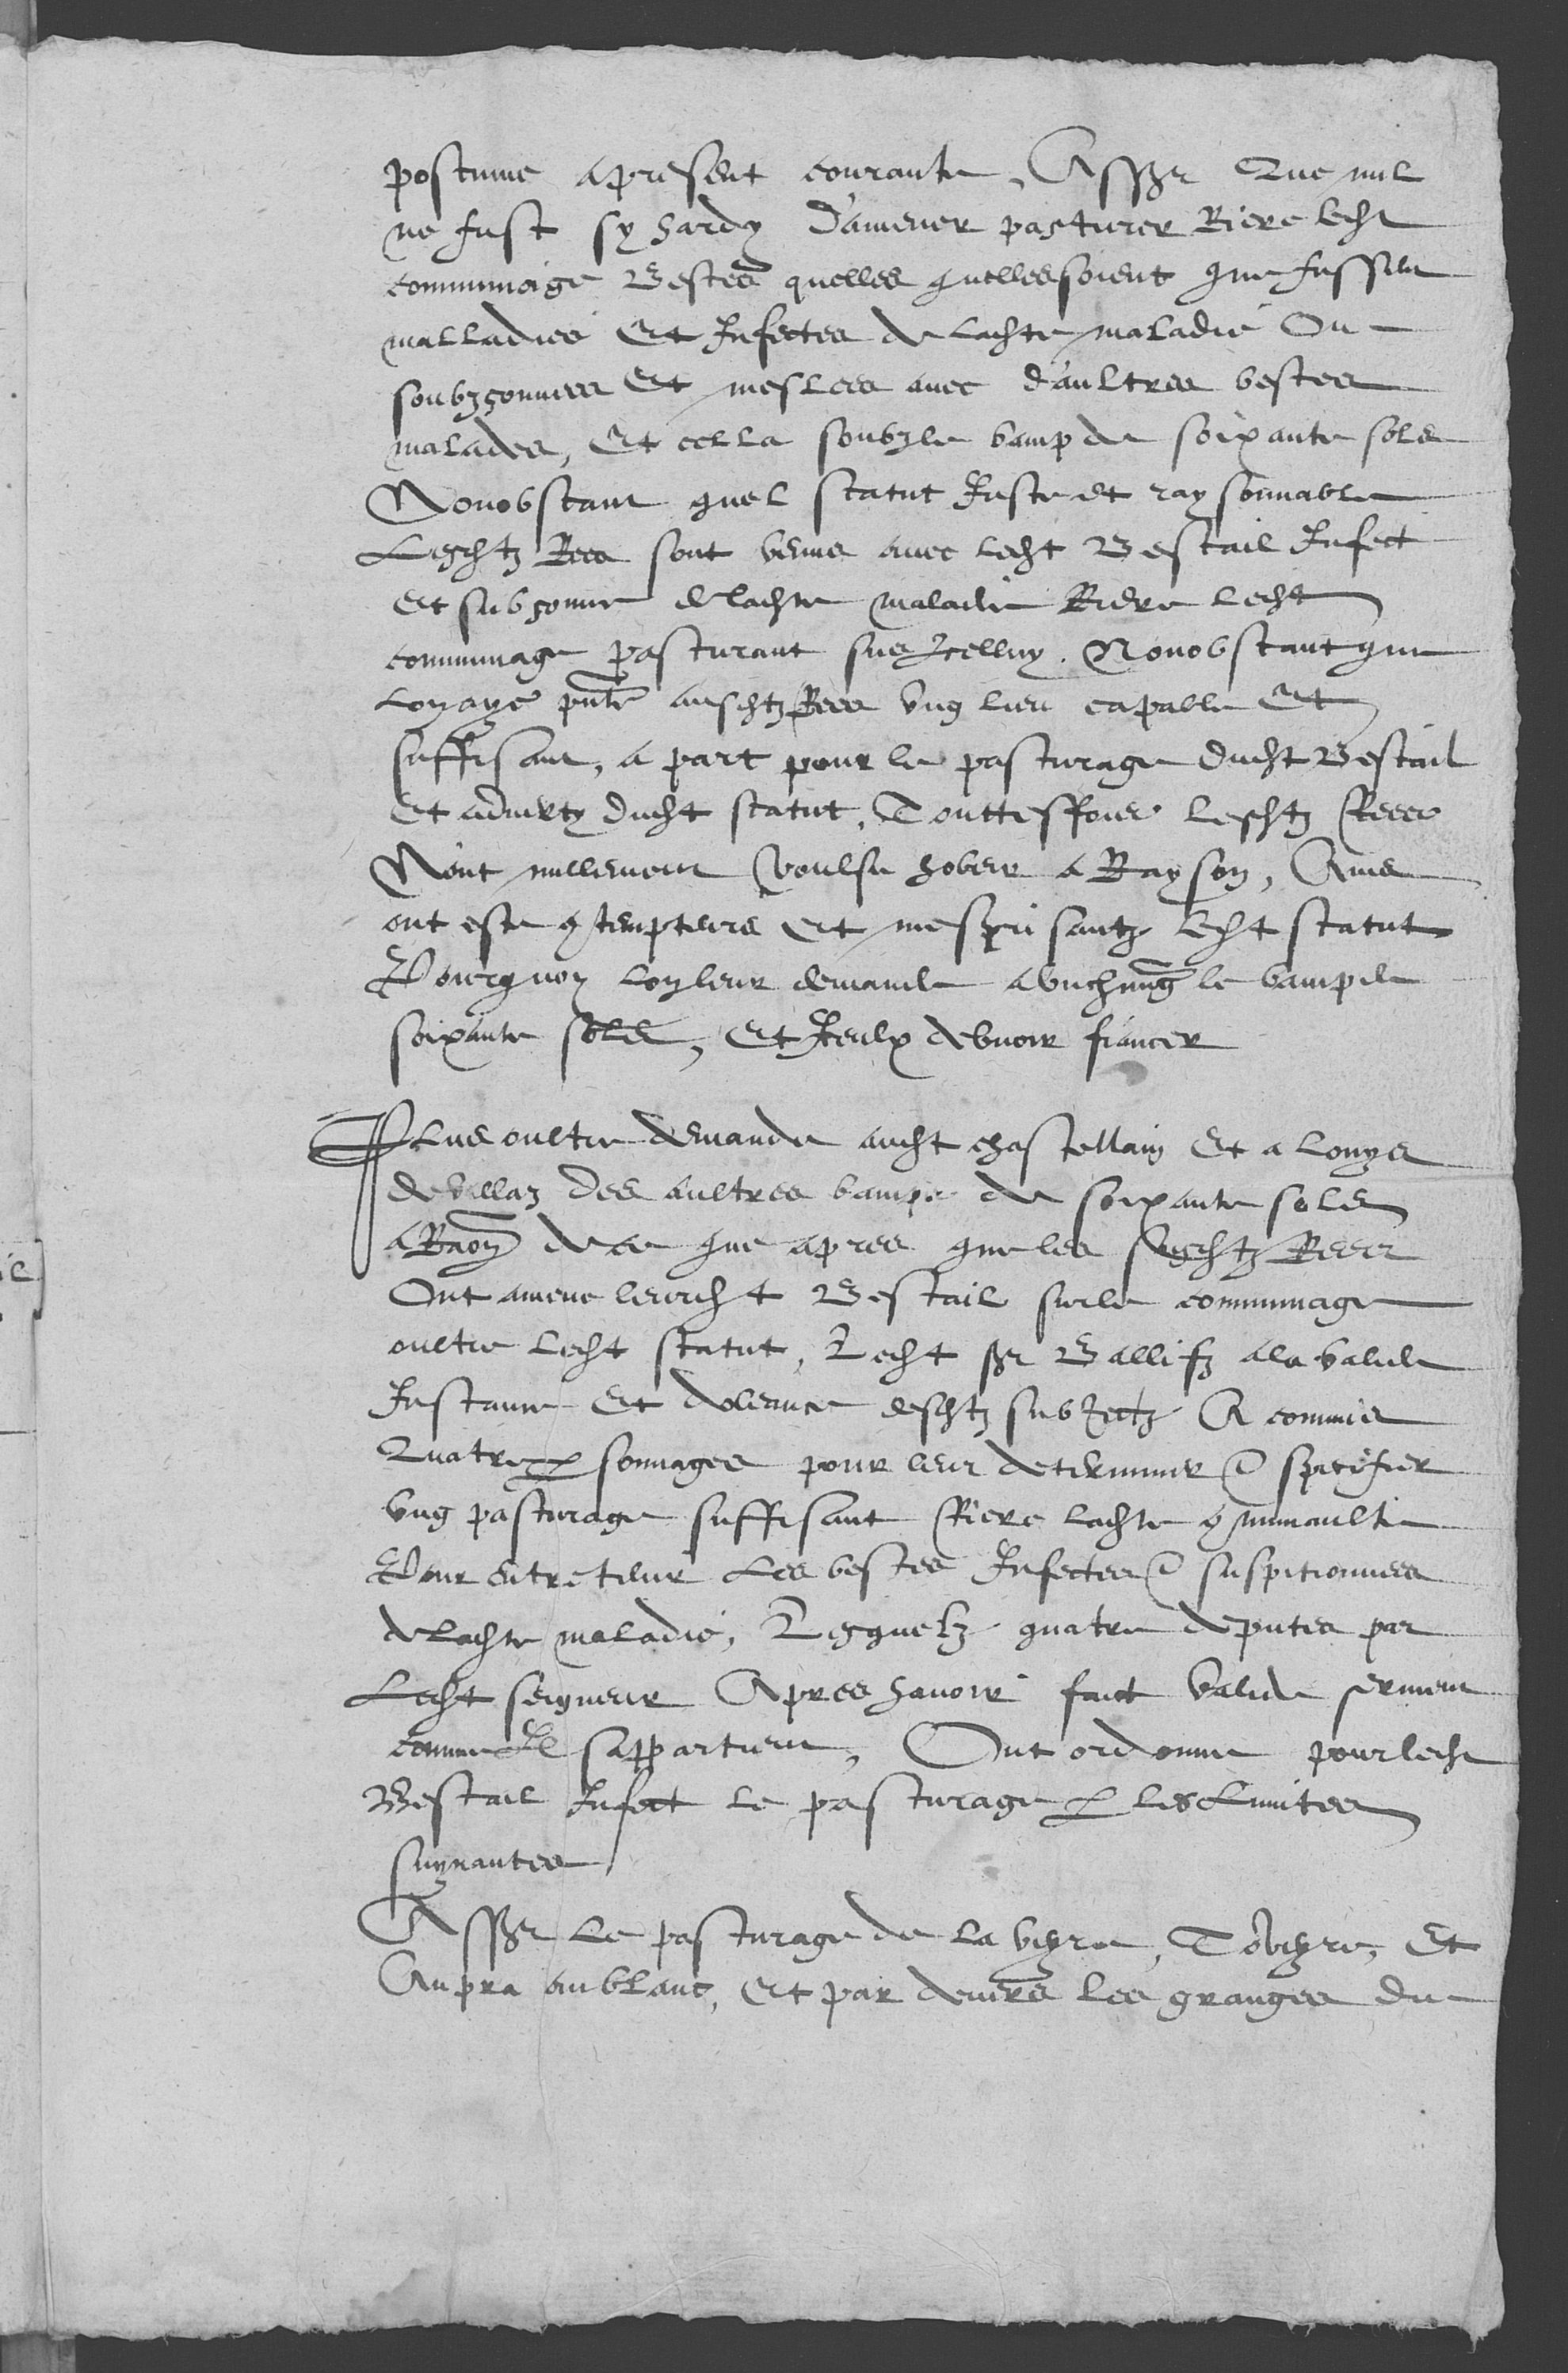 postume a present courante, Assr Que nul
ne fust sy hardy d'amener pasturer Riere ledt
communaige Bestes quelles quelles soient que fussent
malladies Et Infectes de ladte maladie Ou
soubzconnees Et meslees avec d'aultres bestes
malades, Et cella soubz le bamp de soixante sols
Nonobstant quel statut Juste et raysonnable
Lesdtz Rees sont venus avec ledt Bestail Infect
Et subconne de ladte maladie Riere ledt
communage pasturant sus Icelluy. Nonobstant que
Lon aye pnte ausdtz Rees ung lieu capable Et
suffisant, a part pour le pasturage dudt Bestail
Et adverty dudt statut, Touttesffois lesdtz Rees
N'ont nullement voulsu hobeir a Rayson, Ains
ont este 9tempteurs Et mesprisantz ledt statut
Pourquoy lon leur demande a ung chung le bamp de
soixante sols, Et Iceulx debvoir fiancer
Plus oultre demande audt chastellain Et a Louys
de Villaz des aultres bamps de soixante sols
a Raon de ce que apres que les susdtz Rees
Ont amene leurdt Bestail sur le communage
oultre ledt statut, Ledt sr Ballifz a la valide
Instance Et doleance desdtz subjectz A commis
Quatre personnages pour leur determiner & specifier
ung pasturage suffisant Riere ladte 9mmunaulte
Pour entretenir Les bestes Infectes & suspitionnees
de ladte maladie, Lesquelz quatre deputes par
Ledt seigneur Apres havoir faict valide serment
comme Il sappartient, Ont ordonne pour ledt
Bestail Infect le pasturage p les Limites
suyvantes
Assr Le pasturage de la veyre, Toveyre, Et
Au pra au blanc, Et par devers les granges du